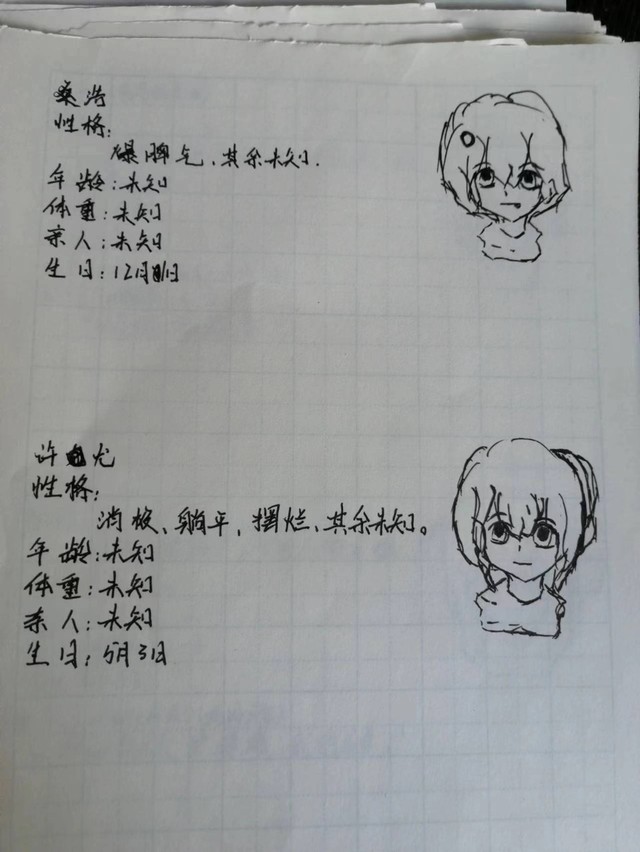 桑浩
性格:
暴脾气、其余未知.
年龄:未知
体重:未知
亲人:未知
生日:12月1日
许龙
性格:
消极、躺平、摆烂、其余未知。
年龄:未知
体重:未知
亲人:未知
生日:5月3日